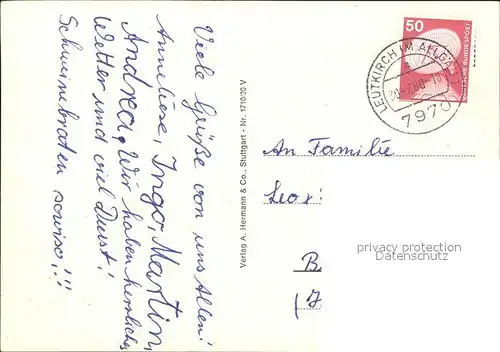 Viele Grüße von uns Allen!
Anneliese, Ingo, Martin,
Andrea, Wir haben herrliches
Wetter und viel Durst!
Schweinebraten sowiso!!!
Verlag A. Hermann & Co., Stuttgart - Nr. 171030 V
50
DEUTSCHE BUNDESPOST
LEUTKIRCH IM ALLGÄU 1
7970
An Familie
privacy protection
copyright watermark
B